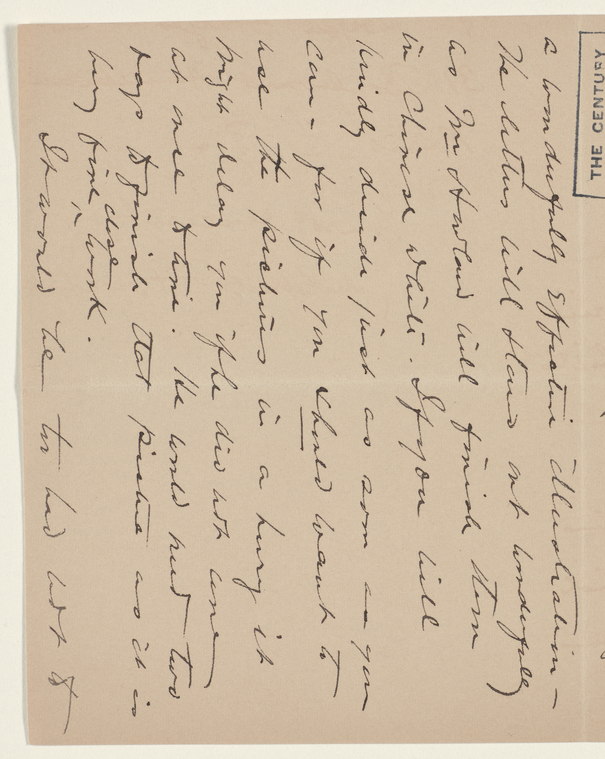 THE CENTURY
a wonderfully effective illustration –
The letters will stand out wonderfully
as Mr Howland will finish them
in Chinese White. If you will
kindly decide just as soon as you
can – for if you should want to
use the pictures in a hurry it
might delay you if he did not come
at once & time. He would need two
days to finish that picture as it is
very fine, close work.
It would be too bad not to